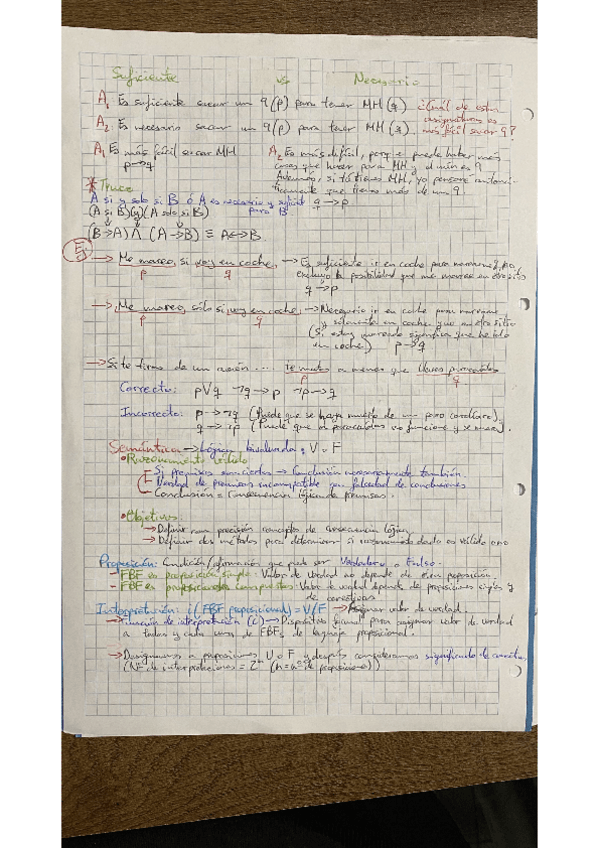 Suficiente vs Necesario
A₁ Es suficiente sacar un 9 (p) para tener MH (q) ¿Cuál de estas
asignaturas es
A₂ Es necesario sacar un 9 (p) para tener MH (q). más fácil sacar 9?
A₁ Es más fácil sacar MH A₂ Es más difícil, porque puede haber más
p→q cosas que hacer para MH y el min es 9
Además, si tú tienes MH, yo pensaré
que tienes más de un 9.
* Truco q→p
A si y solo si B ó A es necesario y para B
(A si B) (y) (A solo si B)
(B→A) ∧ (A→B) ≡ A↔B
Ej → Me mareo, si voy en coche, → Es suficiente ir en coche para marearme, no
p q excluyo la posibilidad que me maree en otro sitio
q→p
→ Me mareo, sólo si voy en coche → Necesario ir en coche para marearme
p q y solamente en coche, y no en otro sitio
(Si estoy mareado significa que he ido
en coche) p→q
→ Si te tiras de un avión .... te matas a menos que lleves paracaídas
p q
Correcto: p∨q ¬q→p ¬p→q
Incorrecto: p→¬q (Puede que se haya muerto de un paro
q→¬p (Puede que un paracaídas no funcione y se mate).
Semántica → Lógica bivaluada: V o F
• Razonamiento válido
Si premisas son ciertas → Conclusión necesariamente también.
Verdad de premisas incompatible con falsedad de conclusiones
Conclusión = Consecuencia lógica de premisas.
• Objetivos:
→ Definir con precisión concepto de consecuencia lógica
→ Definir métodos para determinar si razonamiento dado es válido o no
Proposición: Condición/afirmación que puede ser Verdadero o Falso.
- FBF es proposición simple: Valor de verdad no depende de otra proposición
- FBF es proposiciones compuestas: Valor de verdad depende de proposiciones simples y
de conectivas.
Interpretación: i(FBF proposicional) = V/F → Asignar valor de verdad.
→ Función de interpretación (i) → Dispositivo formal para asignar valor de verdad
a todas y cada una de FBFs de lenguaje proposicional.
→ Designamos a proposiciones V o F y después consideramos significado de conectivas
(Nº de interpretaciones = 2ⁿ (n = nº de proposiciones))